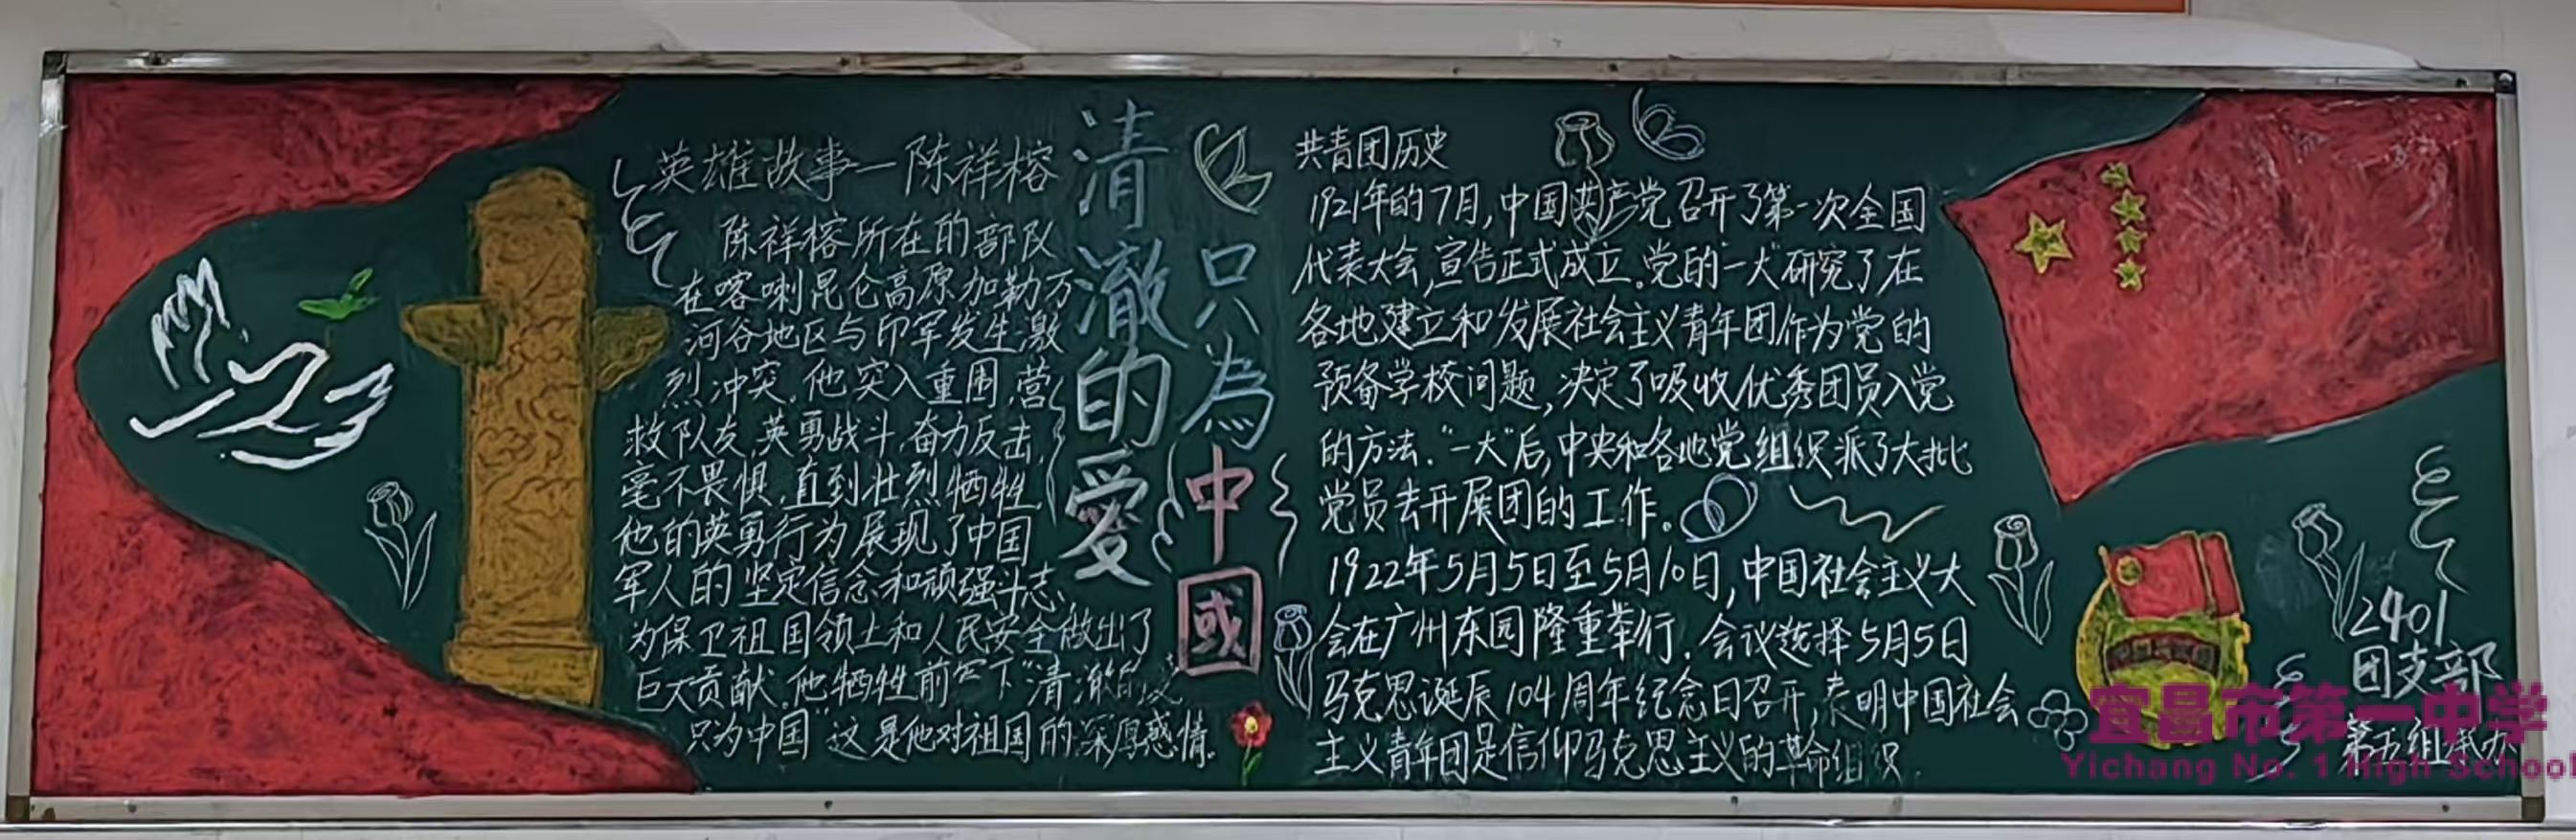 英雄故事—陈祥榕
陈祥榕所在的部队
在喀喇昆仑高原加勒万
河谷地区与印军发生激
烈冲突。他突入重围,营
救队友,英勇战斗,奋力反击,
毫不畏惧,直到壮烈牺牲,
他的英勇行为展现了中国
军人的坚定信念和顽强斗志,
为保卫祖国领土和人民安全做出了
巨大贡献。他牺牲前写下“清澈的爱
只为中国”这是他对祖国的深厚感情。
清澈的愛
只為中國
共青团历史
1921年的7月,中国共产党召开了第一次全国
代表大会,宣告正式成立。党的“一大”研究了在
各地建立和发展社会主义青年团作为党的
预备学校问题,决定了吸收优秀团员入党
的方法.“一大”后,中央和各地党组织派了大批
党员去开展团的工作。
1922年5月5日至5月10日,中国社会主义大
会在广州东园隆重举行.会议选择5月5日
马克思诞辰104周年纪念日召开,表明中国社会
主义青年团是信仰马克思主义的革命组织.
2401
团支部
第五组承办
宜昌市第一中学
Yichang No. 1 High School